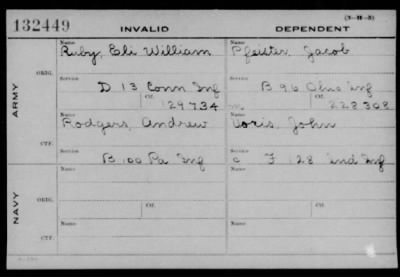 132449 INVALID DEPENDENT (3-H-3)
Name Name
Ruby, Eli William Pfeister, Jacob
ORIG. Service Service
D 13 Conn Inf B 96 Ohio Inf
ARMY Cf. Cf.
129734 m 228308
Name Name
Rodgers, Andrew Voris, John
CTF. Service Service
B 100 Pa Inf c F 128 Ind Inf
Name Name
NAVY ORIG. Service Cf. Service Cf.
Name Name
CTF.